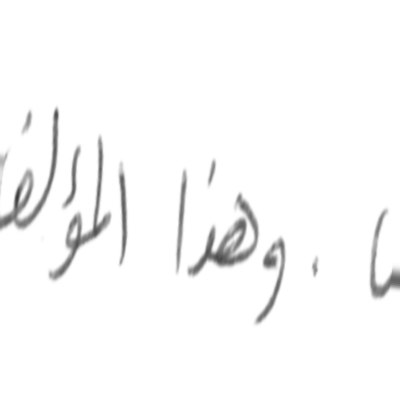 . وهذا المؤلف